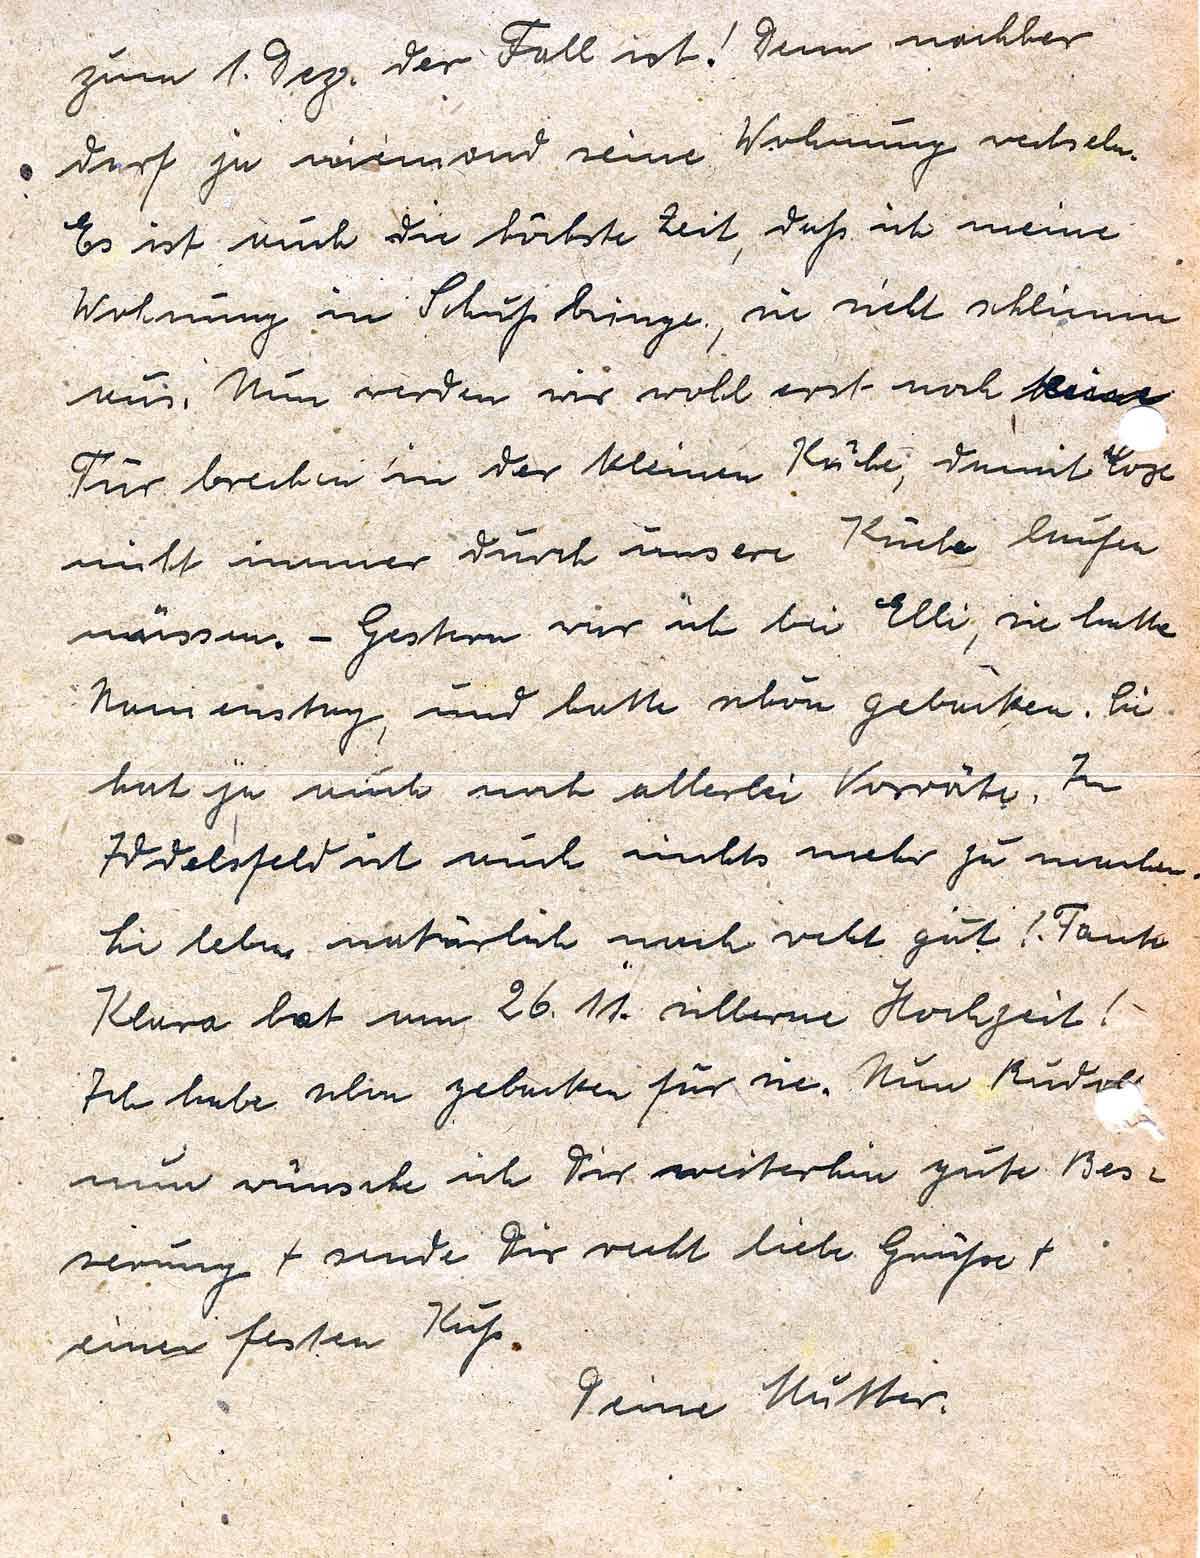 zum 1. Dez. der Fall ist! Denn nachher
darf ja niemand seine Wohnung wechseln.
Es ist auch die höchste Zeit, daß ich meine
Wohnung in Schuß bringe, sie sieht schlimm
aus. Nun werden wir wohl erst noch eine
Tür brechen in der kleinen Küche, damit
nicht immer durch unsere Küche laufen
müssen. – Gestern war ich bei Elli, sie hatte
Namenstag, und hatte schön gebacken. Sie
hat ja auch noch allerlei Vorräte. In
Iddelsfeld ist auch nichts mehr zu machen.
Sie leben natürlich noch recht gut! Tante
Klara hat am 26. 11. silberne Hochzeit!
Ich habe schon gebacken für sie. Nun Rudolf
nun wünsche ich Dir weiterhin gute Bes-
serung + sende Dir recht liebe Grüße +
einen festen Kuß.
Deine Mutter.